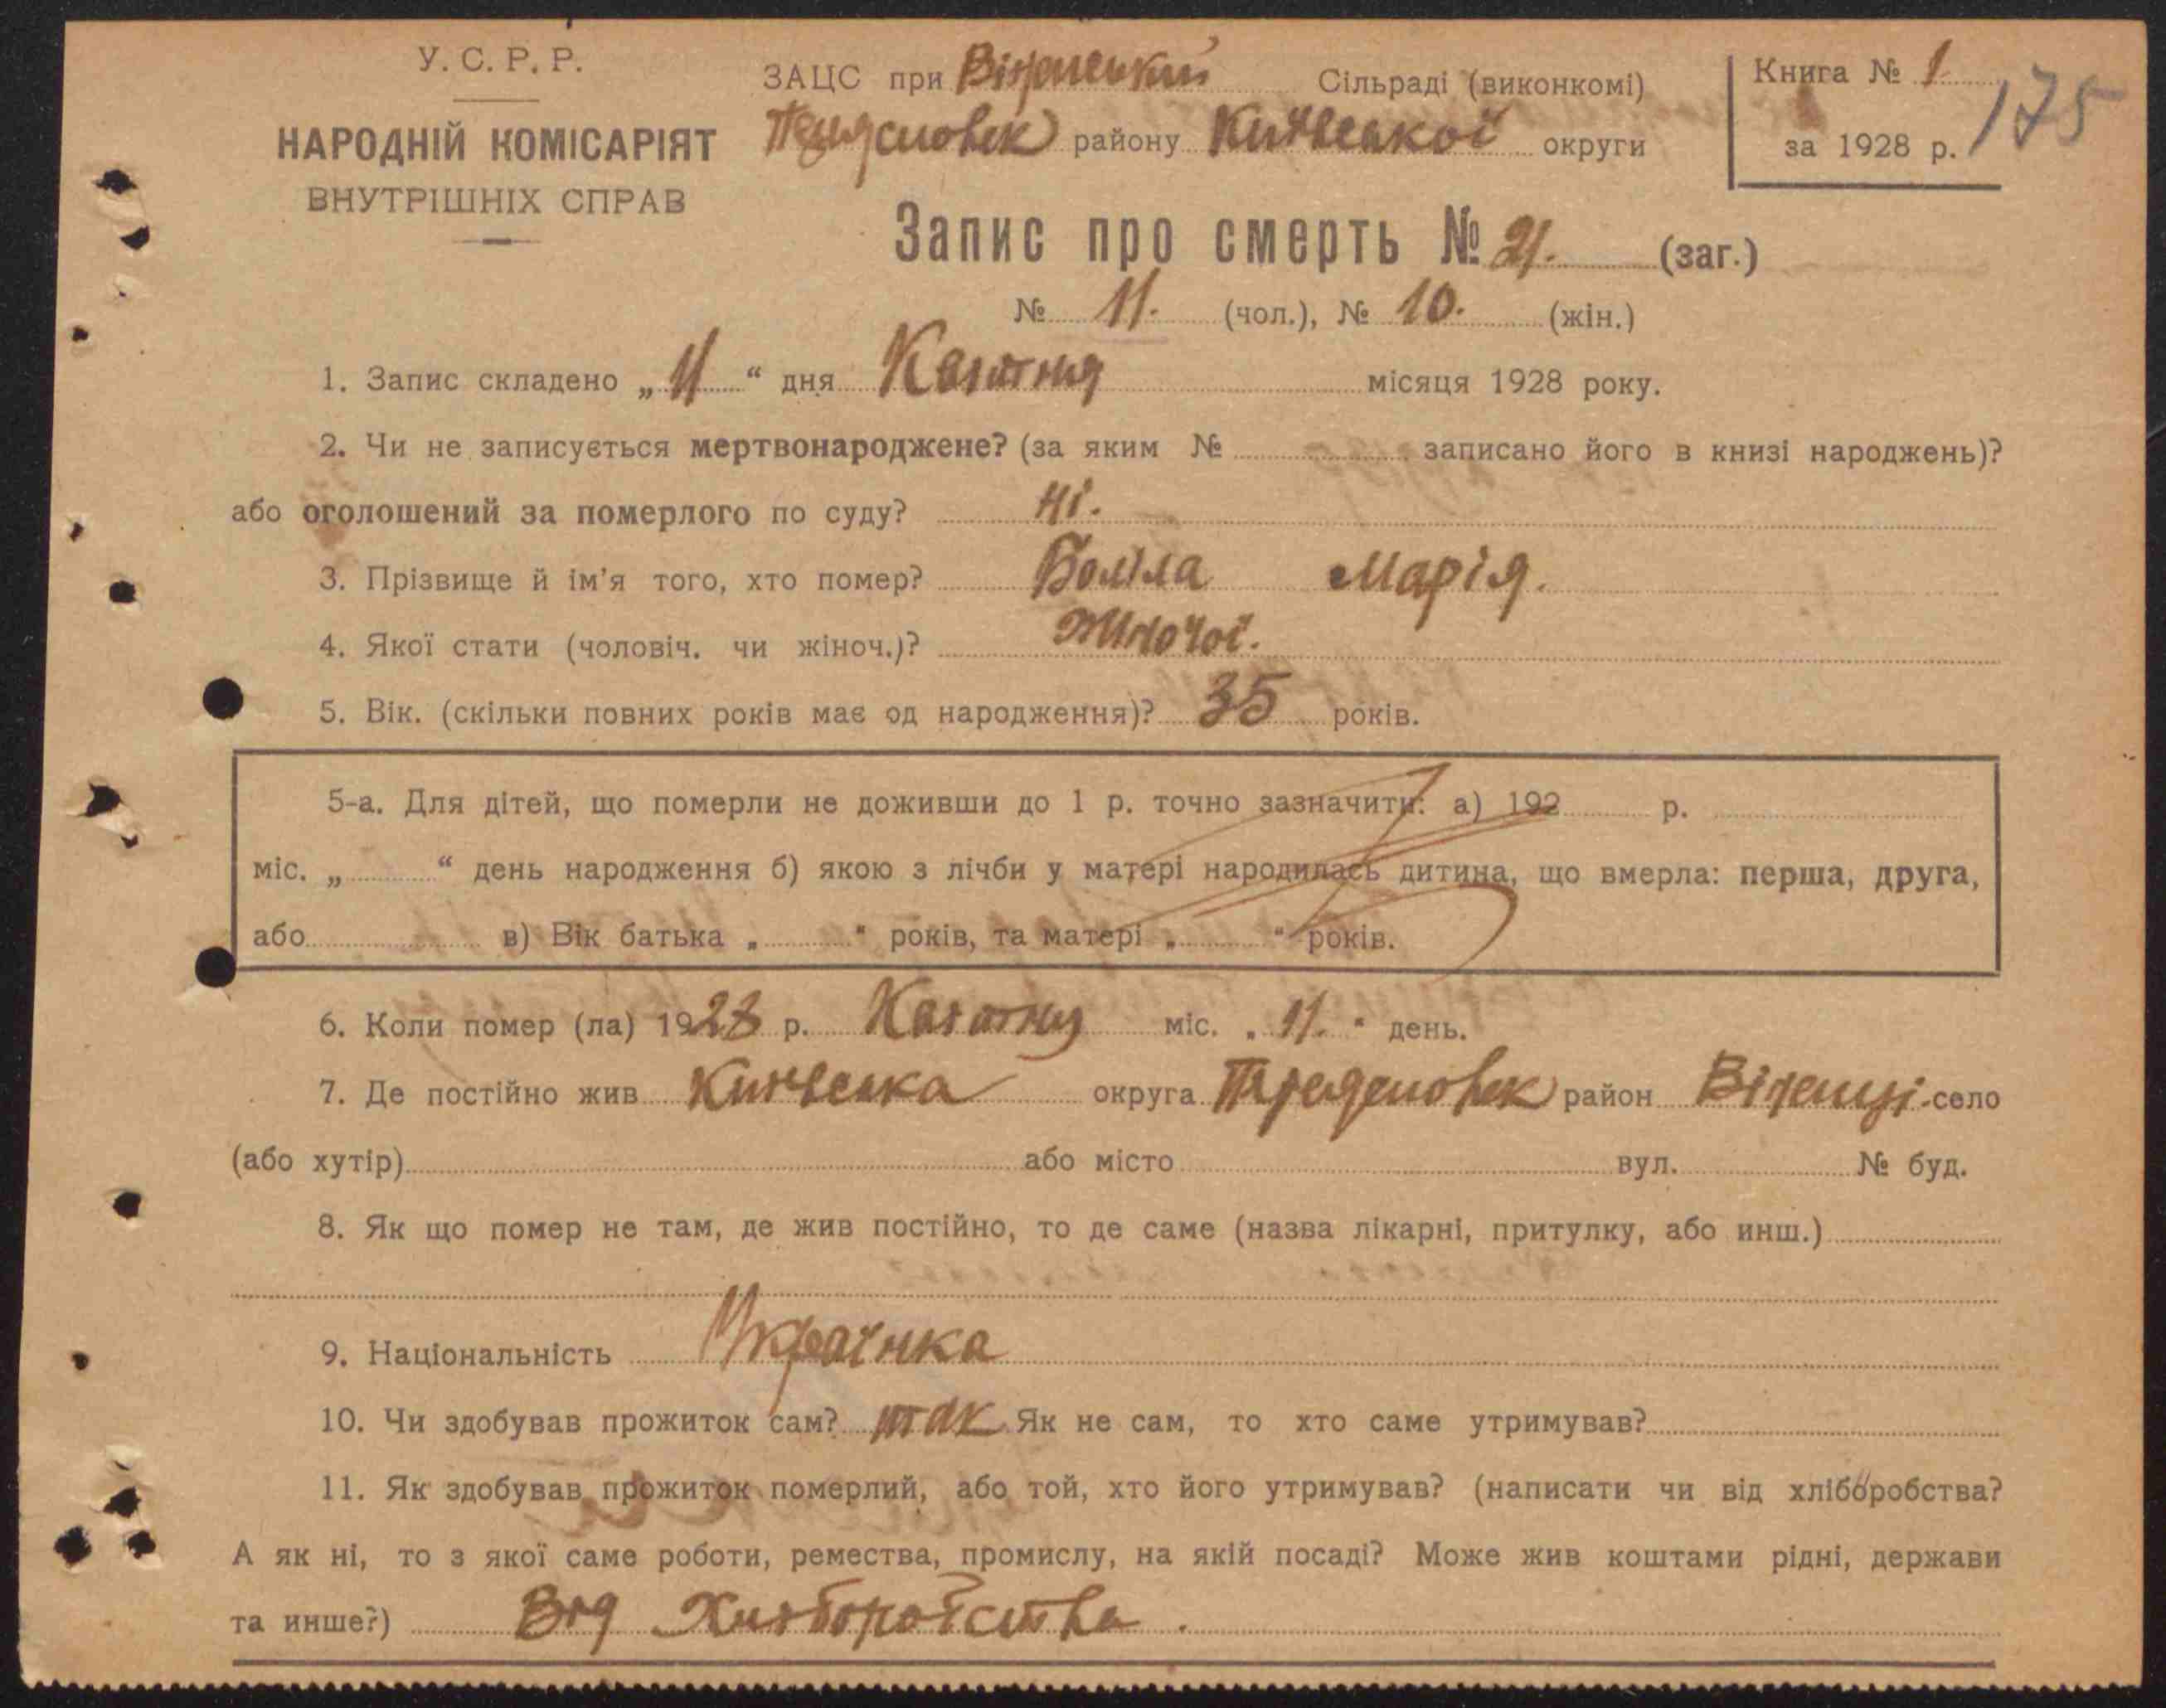 У. С. Р. Р.
НАРОДНІЙ КОМІСАРІЯТ
ВНУТРІШНІХ СПРАВ
ЗАЦС при Сільраді (виконкомі)
району Київської округи
Книга № 1
за 1928 р. 175
Запис про смерть № 21. (заг.)
№ 11. (чол.), № 10. (жін.)
1. Запис складено „11“ дня Квітня місяця 1928 року.
2. Чи не записується мертвонароджене? (за яким № записано його в книзі народжень)?
або оголошений за померлого по суду? ні.
3. Прізвище й ім’я того, хто помер? Марія.
4. Якої стати (чоловіч. чи жіноч.)? жіночої.
5. Вік. (скільки повних років має од народження)? 35 років.
5-а. Для дітей, що померли не доживши до 1 р. точно зазначити: а) 192 р.
міс. „ “ день народження б) якою з лічби у матері народилась дитина, що вмерла: перша, друга,
або в) Вік батька „ “ років, та матері „ “ років.
6. Коли помер (ла) 1928 р. Квітня міс. „11.“ день.
7. Де постійно жив Київська округа район село
(або хутір) або місто вул. № буд.
8. Як що помер не там, де жив постійно, то де саме (назва лікарні, притулку, або инш.)
9. Національність Українка
10. Чи здобував прожиток сам? так Як не сам, то хто саме утримував?
11. Як здобував прожиток померлий, або той, хто його утримував? (написати чи від хліборобства?
А як ні, то з якої саме роботи, ремества, промислу, на якій посаді? Може жив коштами рідні, держави
та инше?) Від Хліборобства.